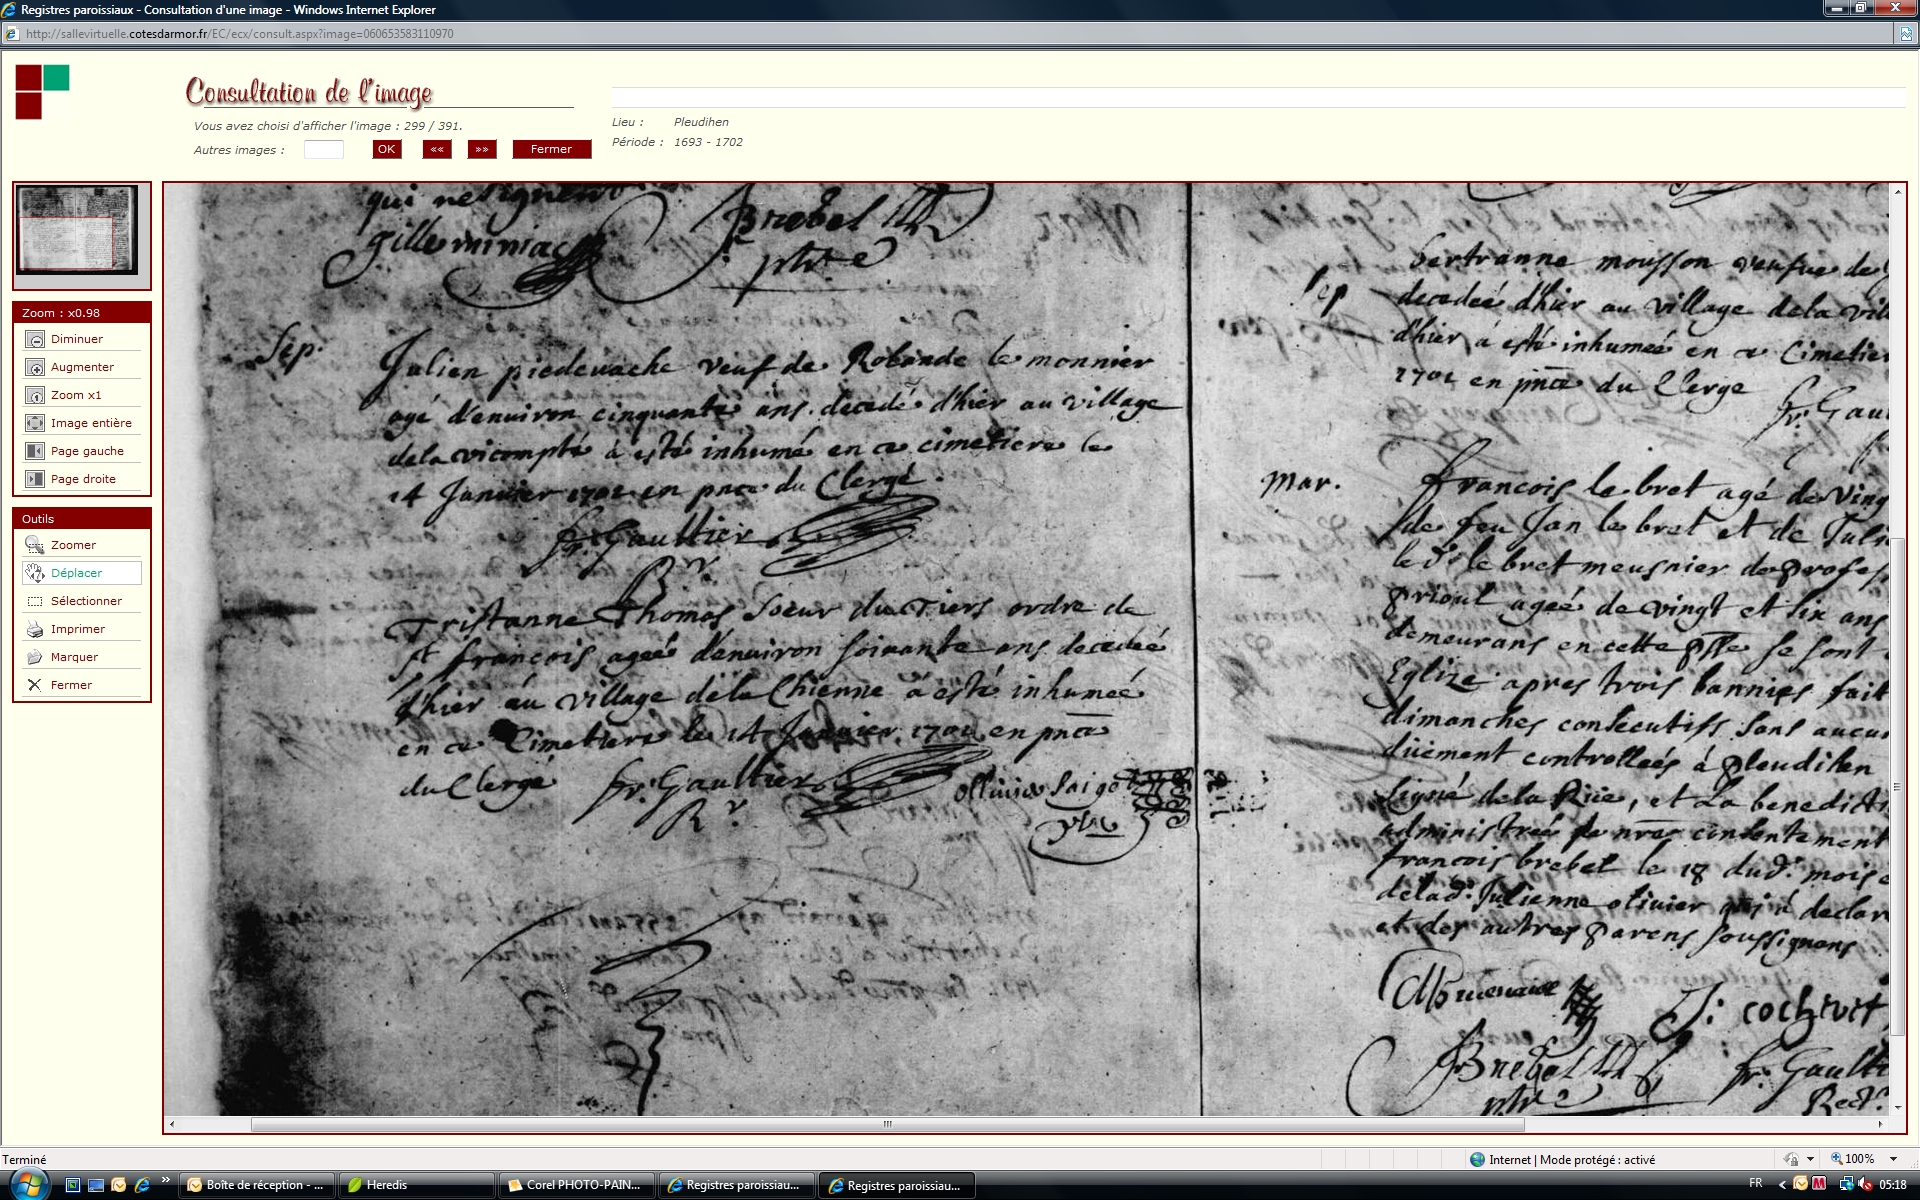 Registres paroissiaux - Consultation d'une image - Windows Internet Explorer
http://sallevirtuelle.cotesdarmor.fr/EC/ecx/consult.aspx?image=060653583110970
Consultation de l'image
Vous avez choisi d'afficher l'image : 299 / 391.
Autres images :
OK
««
»»
Fermer
Lieu : Pleudihen
Période : 1693 - 1702
Zoom : x0.98
Diminuer
Augmenter
Zoom x1
Image entière
Page gauche
Page droite
Outils
Zoomer
Déplacer
Sélectionner
Imprimer
Marquer
Fermer
qui ne signent
gille miniac Brebel
ptre
Sep.
Julien piedevache veuf de Robande le monnier
agé d'enuiron cinquante ans decedé d'hier au village
dela vicompté à esté inhumé en ce cimetiere le
14 Januier 1702 en pnce du Clergé.
fr: Gaultier
Rr
Tristanne Thomas Soeur du Tiers ordre de
st françois ageé d'enuiron soixante ans decedeé
d'hier au village dela Chienne à esté inhumeé
en ce Cimetiere le 14 Januier 1702 en pnce
du Clergé fr: Gaultier
Rr
ollivier Saige
ptre
Sep
bertranne mousson veufue de
decedeé d'hier au village dela vill
d'hier à esté inhumeé en ce Cimetier
1702 en pnce du Clerge
fr: Gaul
mar.
francois le bret agé de ving
de feu Jan le bret et de Juli
le d. le bret meusnier de profes
prioul ageé de vingt et six ans
demeurans en cette psse se sont
Eglize apres trois bannies fait
dimanches consecutifs sans aucu
düement controlleés à pleudihen
signé dela Rüe, et La benedicti
administreé de nre consentement
francois brebel le 18 dud. mois
delad. Julienne olivier qui à declar
et des autres parens soussignans
J: cochivit
Brebel fr: Gaulti
ptre Rect.
Terminé
Internet | Mode protégé : activé
100%
Boîte de réception - ...
Heredis
Corel PHOTO-PAIN...
Registres paroissiau...
Registres paroissiau...
FR
05:18